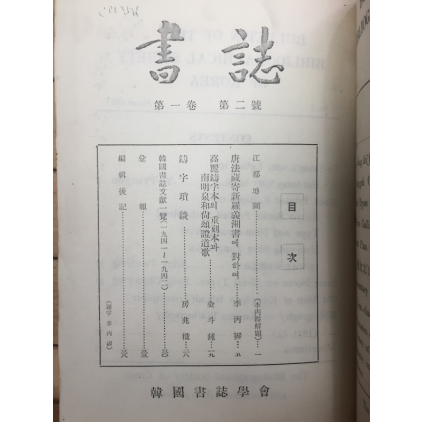 書誌
第一卷 第二號
目次
江都地圖……(李丙燾解題)…一
唐法藏寄新羅義湘書에 對하여……李丙燾…五
高麗鑄字本의 重刻本과
南明泉和尙頌證道歌……金斗鍾…
鑄字瑣談……房兆楹…
韓國書誌文獻一覽(一九四一~一九四二)
彙報
編輯後記
韓國書誌學會